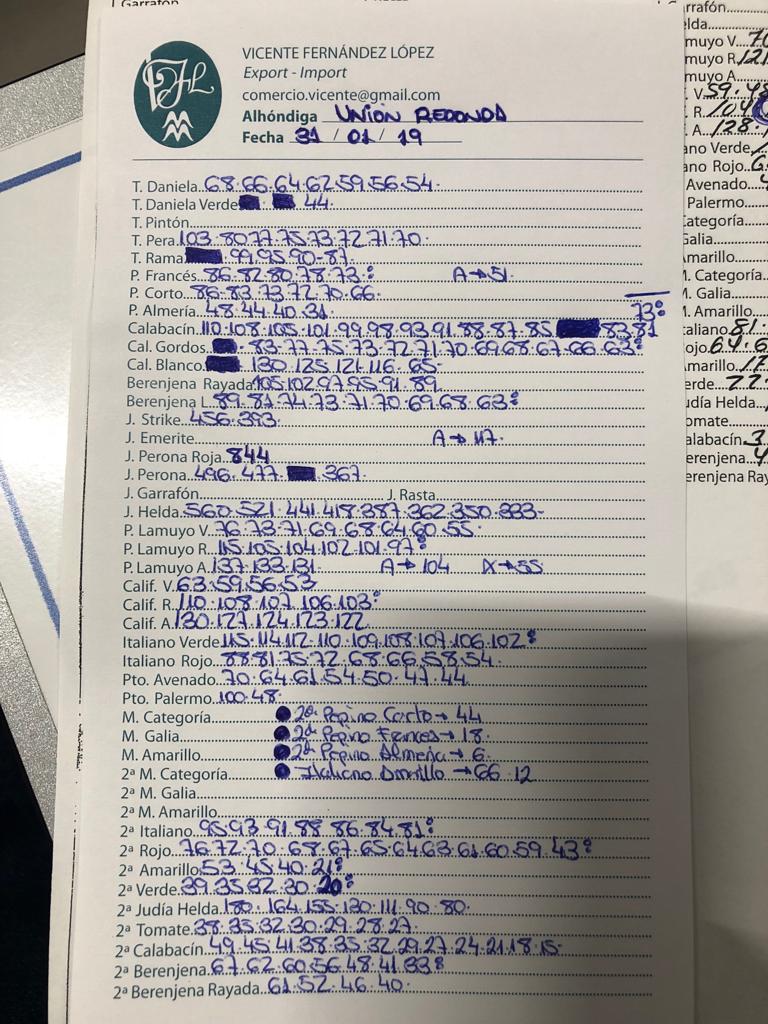 VICENTE FERNÁNDEZ LÓPEZ
Export - Import
comercio.vicente@gmail.com
Alhóndiga UNION REDONDA
Fecha 31 / 01 / 19
T. Daniela 68.66.64.62.59.56.54.
T. Daniela Verde 44
T. Pintón
T. Pera 103.80.77.75.73.72.71.70.
T. Rama 99.95.90-87.
P. Francés 86.82.80.78.73. A→51
P. Corto 86.83.73.72.70.66.
P. Almería 48.44.40.31 73
Calabacín 110.108.105.101.99.98.93.91.88.87.85 83.81
Cal. Gordos 83.77.75.73.72.71.70.69.68.67.66.63
Cal. Blanco 130.125.121.116.65.
Berenjena Rayada 105.102.97.95.91.89
Berenjena L. 89.81.74.73.71.70.69.68.63
J. Strike 456.393.
J. Emerite A→117
J. Perona Roja 844
J. Perona 496.477. 367.
J. Garrafón J. Rasta
J. Helda 560.521.441.418.387.362.350.333-
P. Lamuyo V. 76.73.71.69.68.64.60.55.
P. Lamuyo R. 115.105.104.102.101.97
P. Lamuyo A. 137.133.131 A→104 X→55
Calif. V. 63.59.56.53
Calif. R. 110.108.107.106.103
Calif. A. 130.127.124.123.122
Italiano Verde 115.114.112.110.109.108.107.106.102
Italiano Rojo 88.81.75.72.68.66.58.54.
Pto. Avenado 70.64.61.54.50.47.44
Pto. Palermo 100.48.
M. Categoría 2ª Pepino Corto→44
M. Galia 2ª Pepino Frances→18
M. Amarillo 2ª Pepino Almeria→6
2ª M. Categoría Italiano Amarillo→66.12
2ª M. Galia
2ª M. Amarillo
2ª Italiano 95.93.91.88.86.84.81
2ª Rojo 76.72.70.68.67.65.64.63.61.60.59.43
2ª Amarillo 53.45.40.21
2ª Verde 39.35.32.30.20
2ª Judía Helda 180.164.155.130.111.90.80.
2ª Tomate 38.35.32.30.29.28.27
2ª Calabacín 49.45.41.38.35.32.29.27.24.21.18.15.
2ª Berenjena 67.62.60.56.48.41.33
2ª Berenjena Rayada 61.52.46.40.